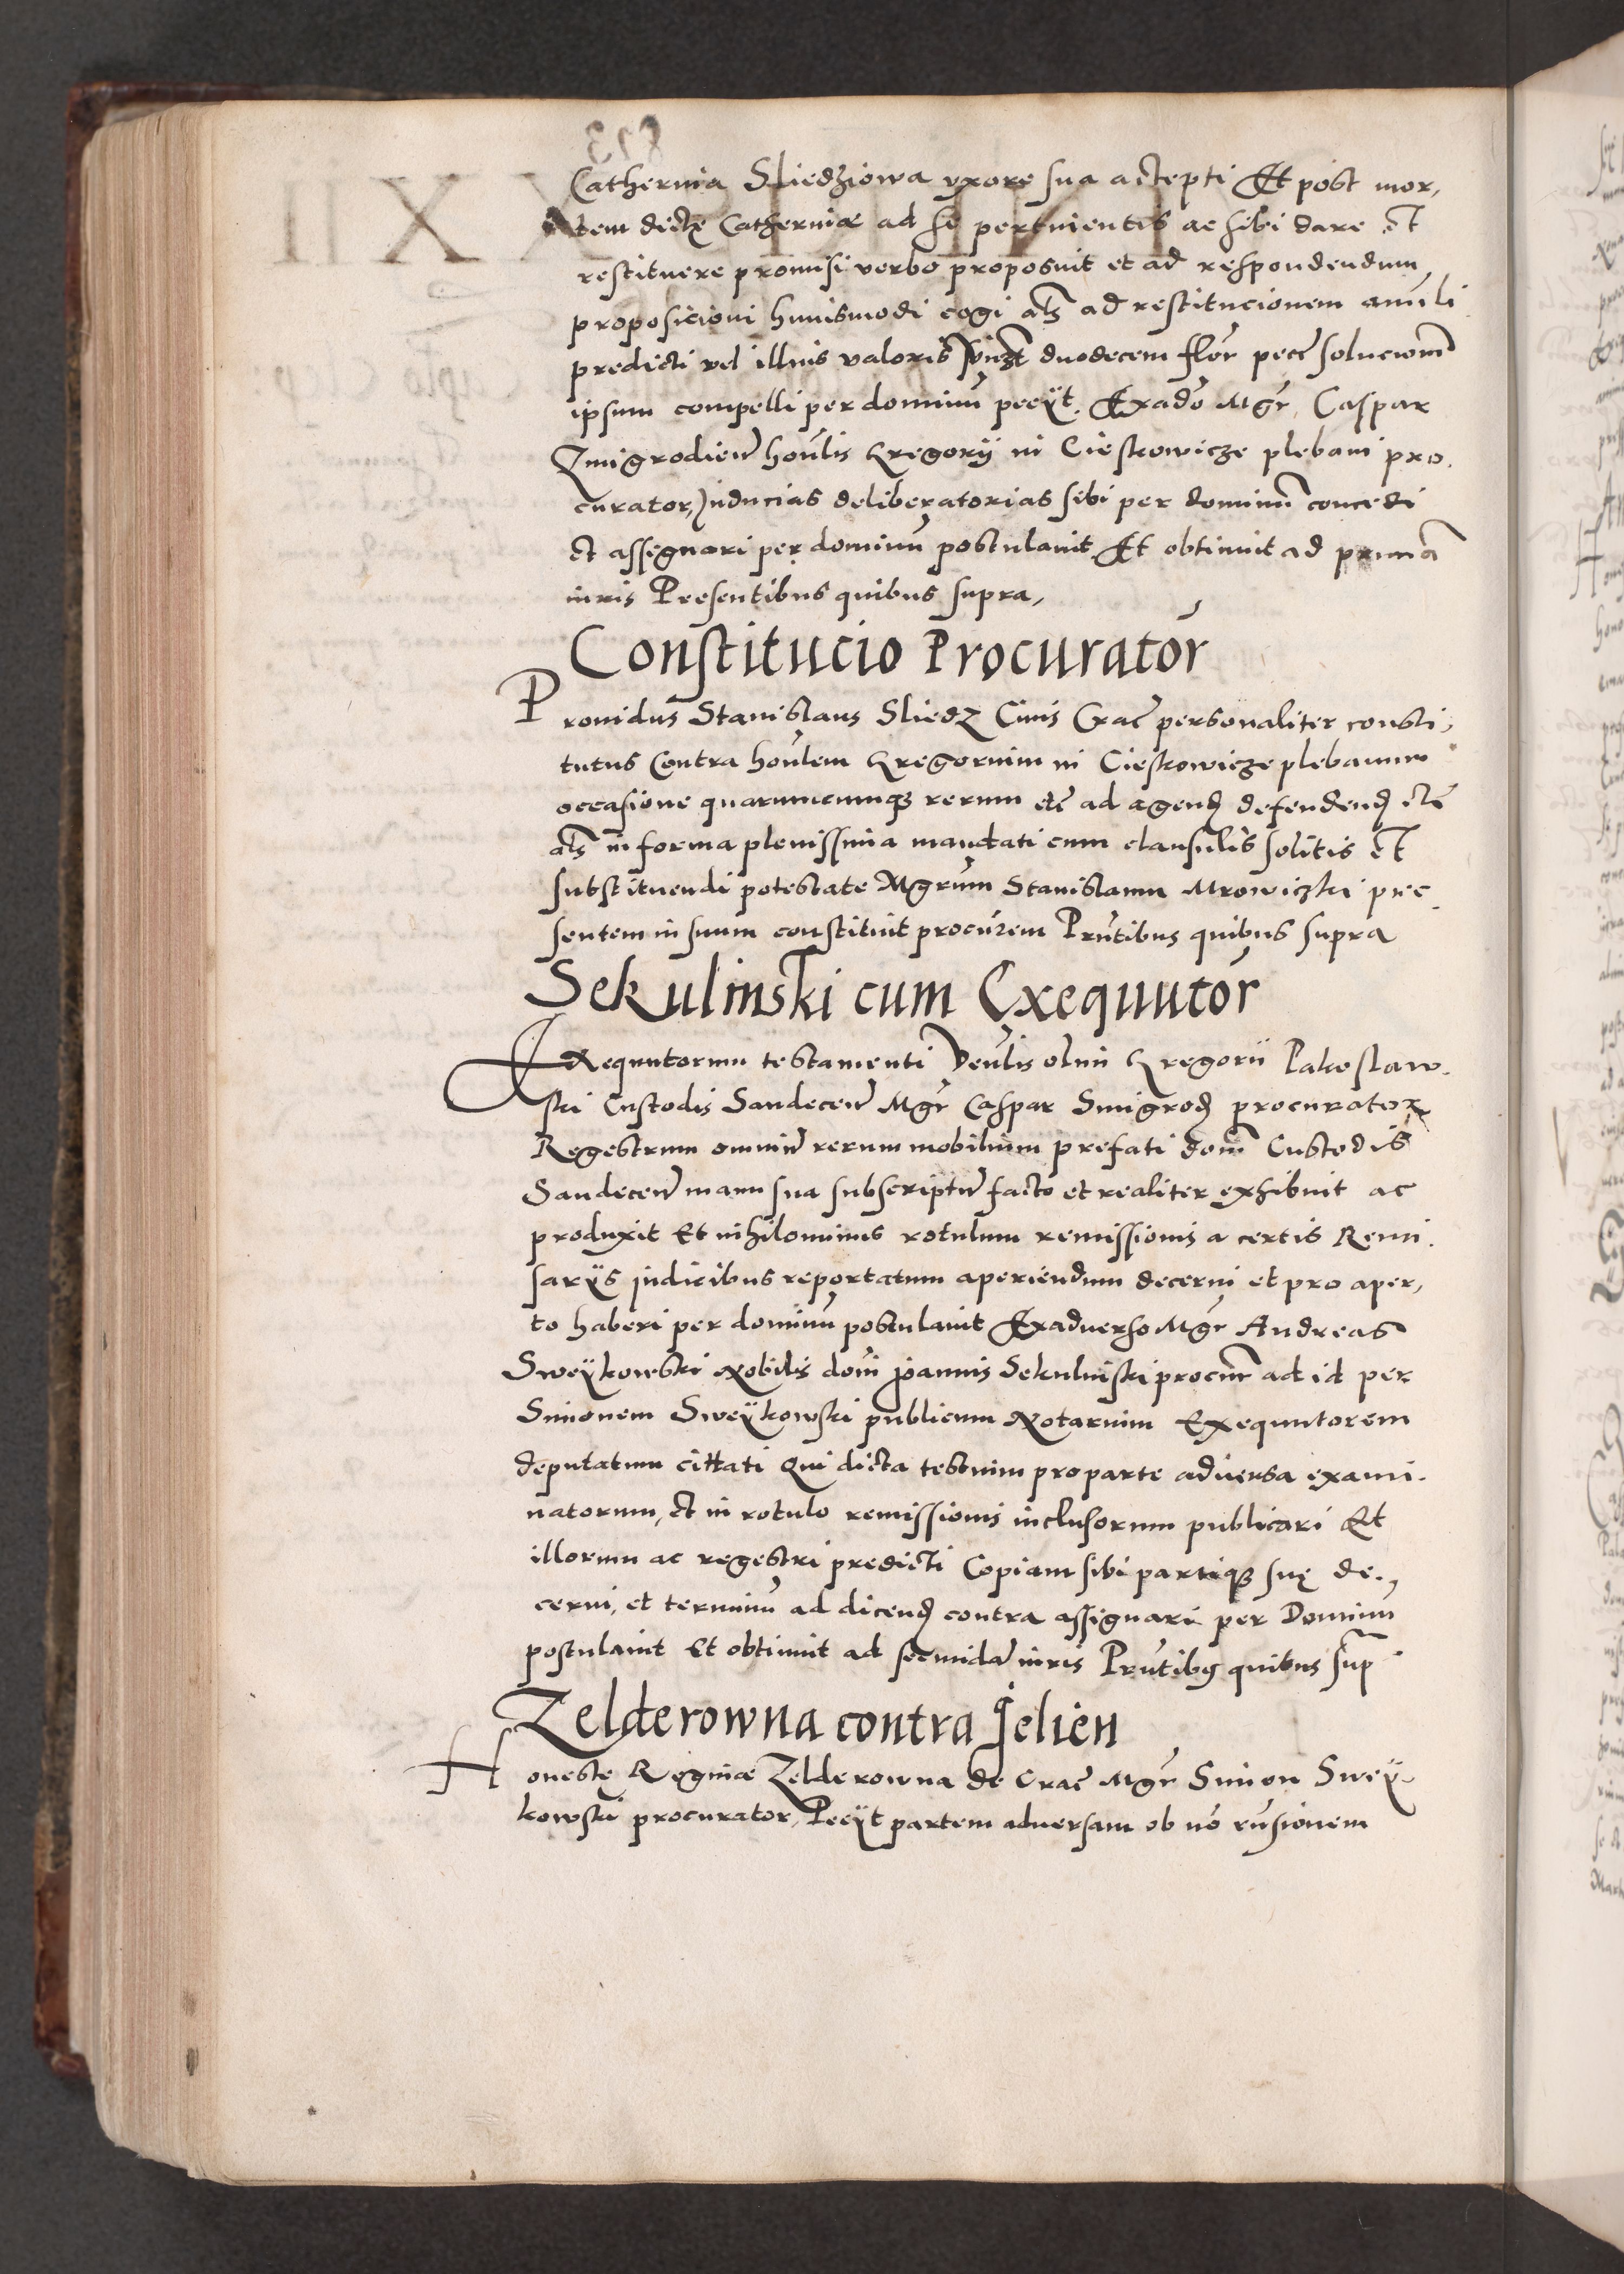 Catherina Sliedziowa vxore sua accepti Et post mor,
tem dictę Catherinæ ad se pertinentis ac sibi dare et
restituere promisi verbo proposuit et ad respondendum
proposicioni huiusmodi cogi als ad restitucionem anuli
predicti vel illius valoris vińzt duodecem flor̄ pecc̄ solucionē
ipsum compelli per dominū peciÿt. Exado Mgr̄ Caspar
Zmigrodien̄ honlis Gregorÿ in Cieskowicze plebani pro,
curator, Inducias deliberatorias sibi per dominū concedi
et assignari per dominū postulavit Et obtinuit ad primā
iuris Presentibus quibus supra,
Constitucio Procurator̄
Prouidus Stanislaus Sliedz Ciuis Crac̄ personaliter consti,
tutus Contra honlem Gregorium in Cieskowicze plebanum
occasione quarumcumqꝫ rerum etc̄ ad agend̄ defendend̄ etc̄
als in forma plenissima mandati cum clausulis solitis et
substituendi potestate Mgrum Stanislaum Mrowiczki pre
sentem in suum constituit procurem Prn̄tibus quibus supra
Sekulinski cum Exequutor̄
Exequutorum testamenti Venlis olim Gregorii Pakoslaw,
ski Custodis Sandecen̄ Mgr̄ Caspar Smigrod̄ procurator
Regestrum omniū rerum mobilium prefati dom̄ Custodis
Sandecen̄ manu sua subscriptū facto et realiter exhibuit ac
produxit Et nihilominus rotulum remissionis a certis Remi,
sarÿs iudicibus reportatum aperiendum decerni et pro aper,
to haberi per dominū postulauit Exaduerso Mgr̄ Andreas
Sweÿkowski Nobilis doni Joannis Sekulinski procur̄ ad id per
Simonem Sweÿkowski publicum Notarium Exequutorem
deputatum cittati Qui dicta testium pro parte aduersa exami,
natorum, et in rotulo remissionis inclusorum publicari Et
illorum ac regestri predicti Copiam sibi partiqꝫ suę de,
cerni, et terminū ad dicend̄ contra assignari per Dominū
postulauit Et obtinuit ad secundā iuris Prn̄tibꝫ quibus sup̄
Zelderowna contra Jelien
Honestę Reginæ Zelderowna de Crac̄ Mgr̄ Simon Sweÿ,
kowski procurator, Peciÿt partem aduersam ob nō rn̄sionem